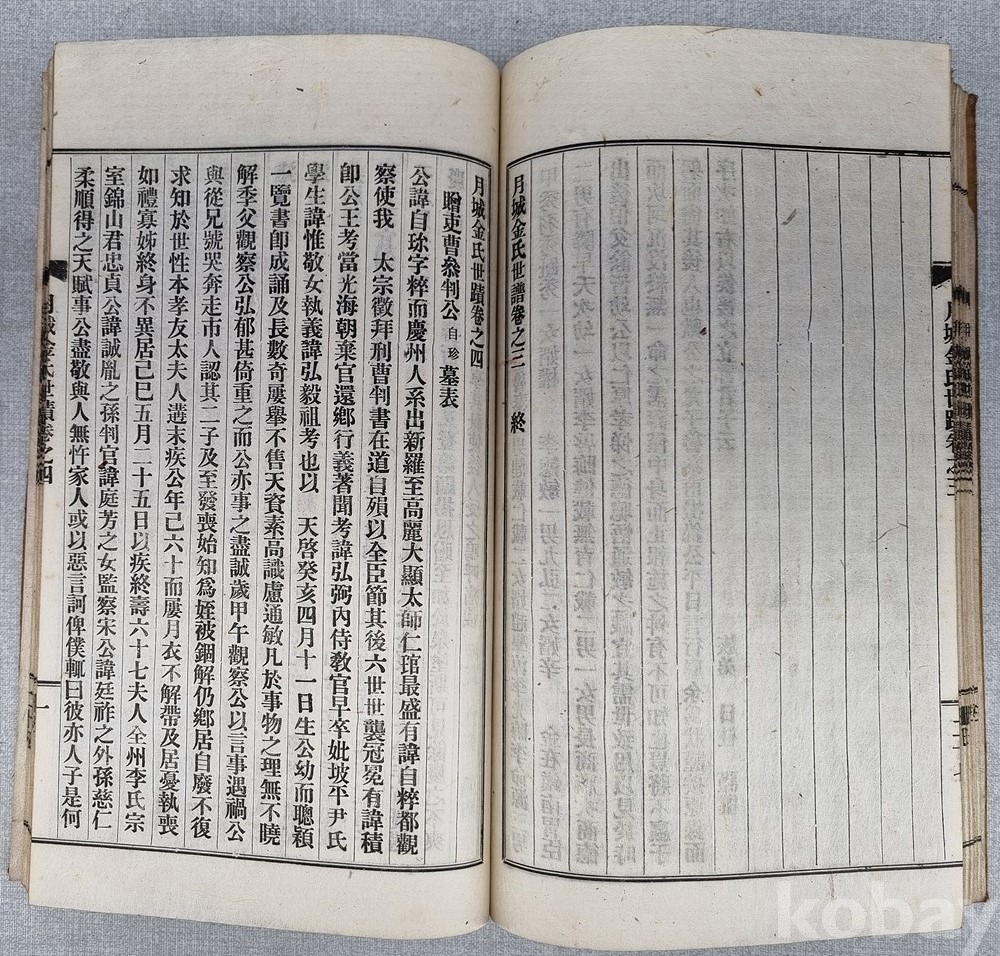 月城金氏世譜卷之三 終
月城金氏世蹟卷之四
贈吏曹參判公自珍墓表
公諱自珎字粹而慶州人系出新羅至高麗大顯太師仁琯最盛有諱自粹都觀
察使我 太宗徵拜刑曹判書在道自殞以全臣節其後六世世襲冠冕有諱積
卽公王考當光海朝棄官還鄉行義著聞考諱弘弼內侍敎官早卒妣坡平尹氏
學生諱惟敬女執義諱弘毅祖考也以 天啓癸亥四月十一日生公幼而聰穎
一覽書卽成誦及長數奇屢擧不售天資素高識慮通敏凡於事物之理無不曉
解季父觀察公弘郁甚倚重之而公亦事之盡誠歲甲午觀察公以言事遇禍公
與從兄號哭奔走市人認其二子及至發喪始知爲姪被錮解仍鄉居自廢不復
求知於世性本孝友太夫人遘末疾公年己六十而屢月衣不解帶及居憂執喪
如禮寡姊終身不異居己巳五月二十五日以疾終壽六十七夫人全州李氏宗
室錦山君忠貞公諱誠胤之孫判官諱庭芳之女監察宋公諱廷祚之外孫慈仁
柔順得之天賦事公盡敬與人無忤家人或以惡言訶俾僕輒曰彼亦人子是何
月城金氏世蹟卷之四
一
kobay